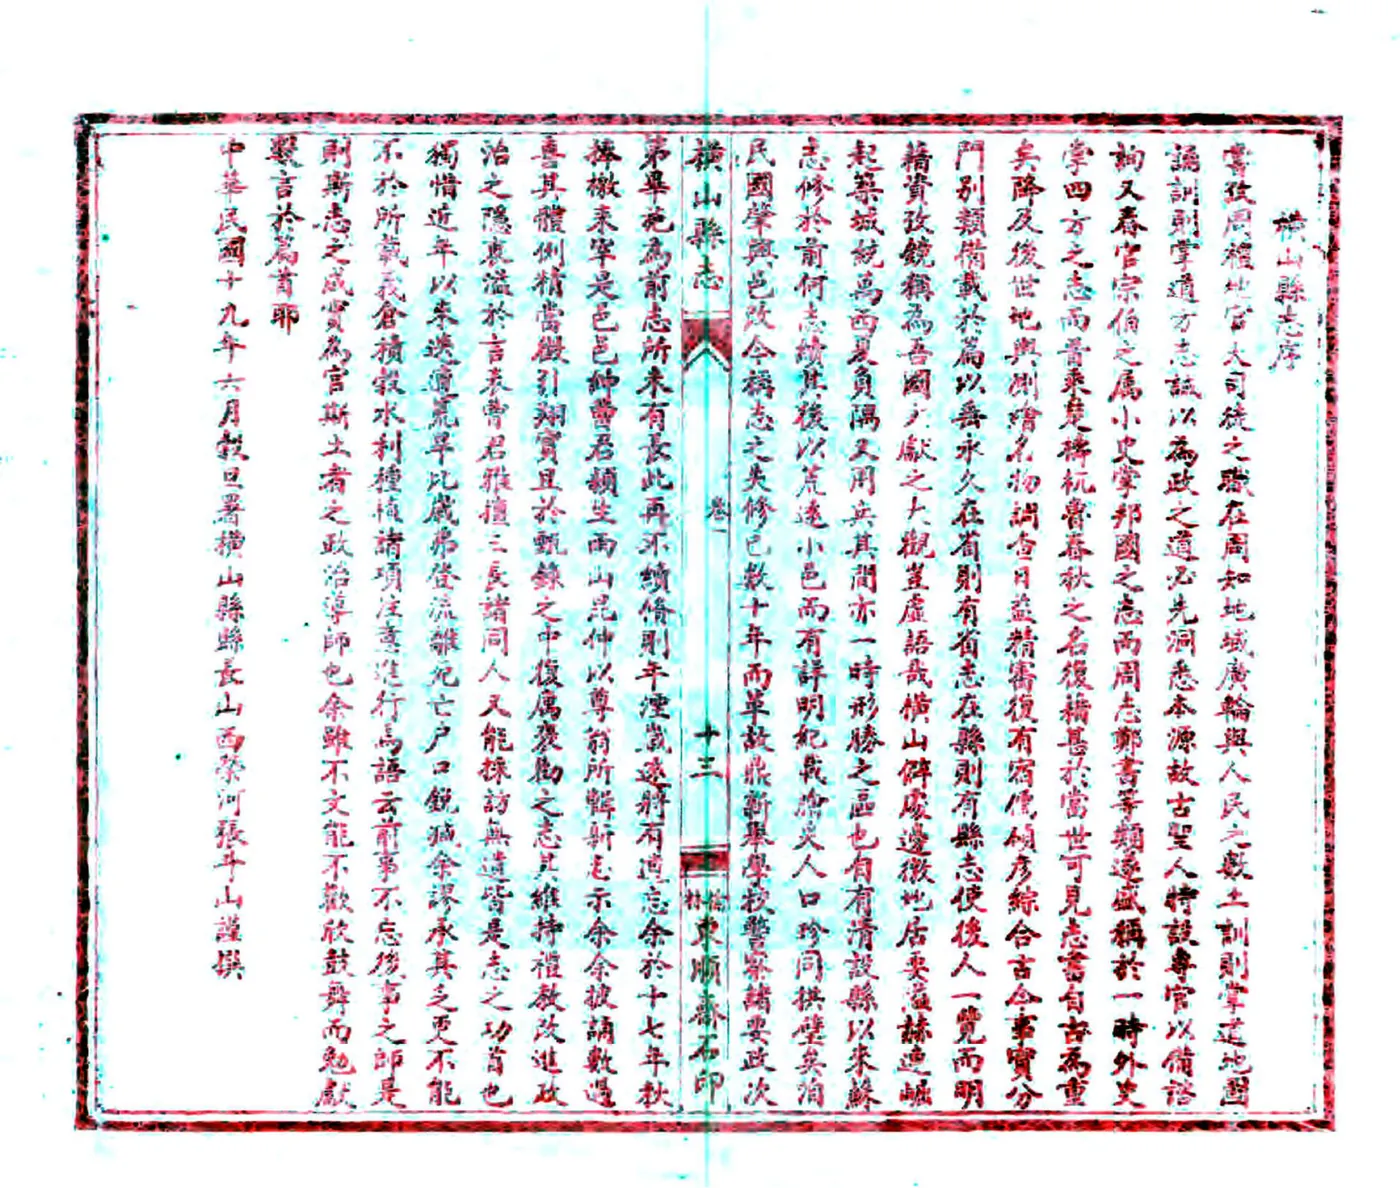 橫山縣志序
嘗攷周禮地官大司徒之職在周知地域廣輪與人民之數土訓則掌道地圖
誦訓則掌道方志誠以為政之道必先洞悉本源故古聖人特設專官以備諮
詢又春官宗伯之屬小史掌邦國之志而周志鄭書等類遂盛稱於一時外史
掌四方之志而晉乘楚檮杌魯春秋之名復藉甚於當世可見志書自古為重
矣降及後世地輿測繪名物調查日益精審復有宿儒碩彥綜合古今事實分
門別類備載於篇以垂永久在省則有省志在縣則有縣志使後人一覽而明
藉資攷鏡稱為吾國文獻之大觀豈虛語哉橫山僻處邊徼地居要溢赫連崛
起築城統萬西夏負隅又用兵其間亦一時形勝之區也自有清設縣以來蘇
志修於前何志續其後以荒遠小邑而有詳明紀載膾炙人口珍同拱璧矣洎
民國肇興邑改今稱志之失修已數十年而革故鼎新舉學校警察諸要政次
橫山縣志
卷一
十三
榆林東順齋石印
第舉苑為前志所未有長此再不續脩則年湮歲遠將有遺忘余於十七年秋
捧檄来宰是邑邑紳曹君穎生雨山昆仲以尊翁所輯斯志示余余披誦數過
喜其體例精當徵引翔實且於甄錄之中復寓褒勸之志其維持禮教改進政
治之隱衷溢於言表曹君雅擅三長諸同人又能採訪無遺皆是志之功首也
獨惜近年以來迭遭荒旱比歲弗登流離死亡戶口銳減余謬承其乏更不能
不於所載義倉積穀水利種植諸項注意進行焉語云前事不忘後事之師是
則斯志之成實為官斯土者之政治導師也余雖不文能不歡欣鼓舞而勉獻
數言於篇首耶
中華民國十九年六月穀旦署橫山縣縣長山西榮河張斗山謹撰